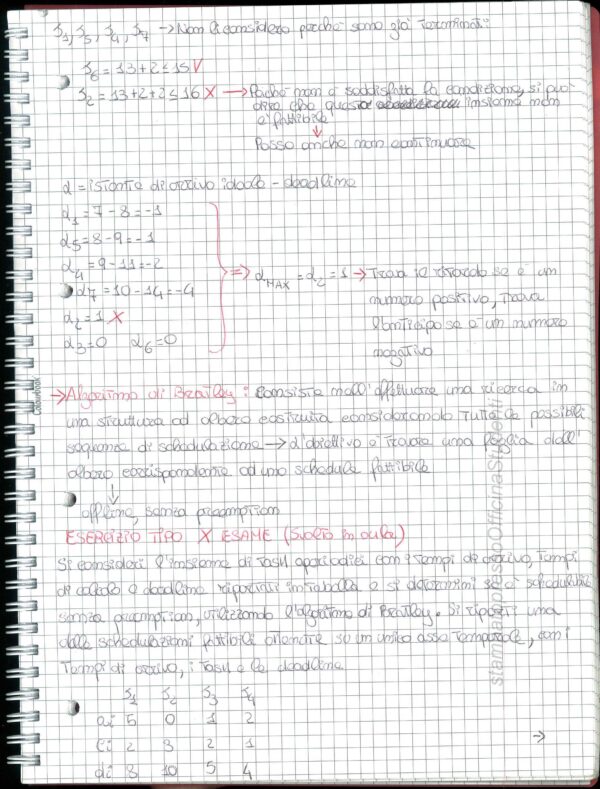 J1, J5, J4, J7 → Non li considero perché sono già terminati:
J6 = 13+2 ≤ 15 V
J2 = 13+2+2 ≤ 16 X → Poiché non è soddisfatta la condizione, si può
dire che questo insieme non
è fattibile
↓
Posso anche non continuare
α = istante di arrivo ideale - deadline
α1 = 7 - 8 = -1
α5 = 8 - 9 = -1
α4 = 9 - 11 = -2
α7 = 10 - 14 = -4
α2 = 1 X
α3 = 0 α6 = 0
⇒ αMAX = α2 = 1 → Trova il ritardo se è un
numero positivo, trova
l'anticipo se è un numero
negativo
→ Algoritmo di Bratley: consiste nell'effettuare una ricerca in
una struttura ad albero costruita considerando tutte le possibili
sequenze di schedulazione → L'obiettivo è trovare una foglia dell'
albero corrispondente ad uno schedule fattibile
↓
offline, senza preemption
ESERCIZIO TIPO X ESAME (Svolto in aula)
Si consideri l'insieme di task aperiodici con i tempi di arrivo, tempi
di calcolo e deadline riportati in tabella e si determini se è schedulabile
senza preemption, utilizzando l'algoritmo di Bratley. Si riporti una
delle schedulazioni fattibili ottenute su un unico asse temporale, con i
tempi di arrivo, i task e le deadline
J1 J2 J3 J4
ai 5 0 1 2
Ci 2 3 2 1
di 8 10 5 4
→
stampato presso Officina Studenti